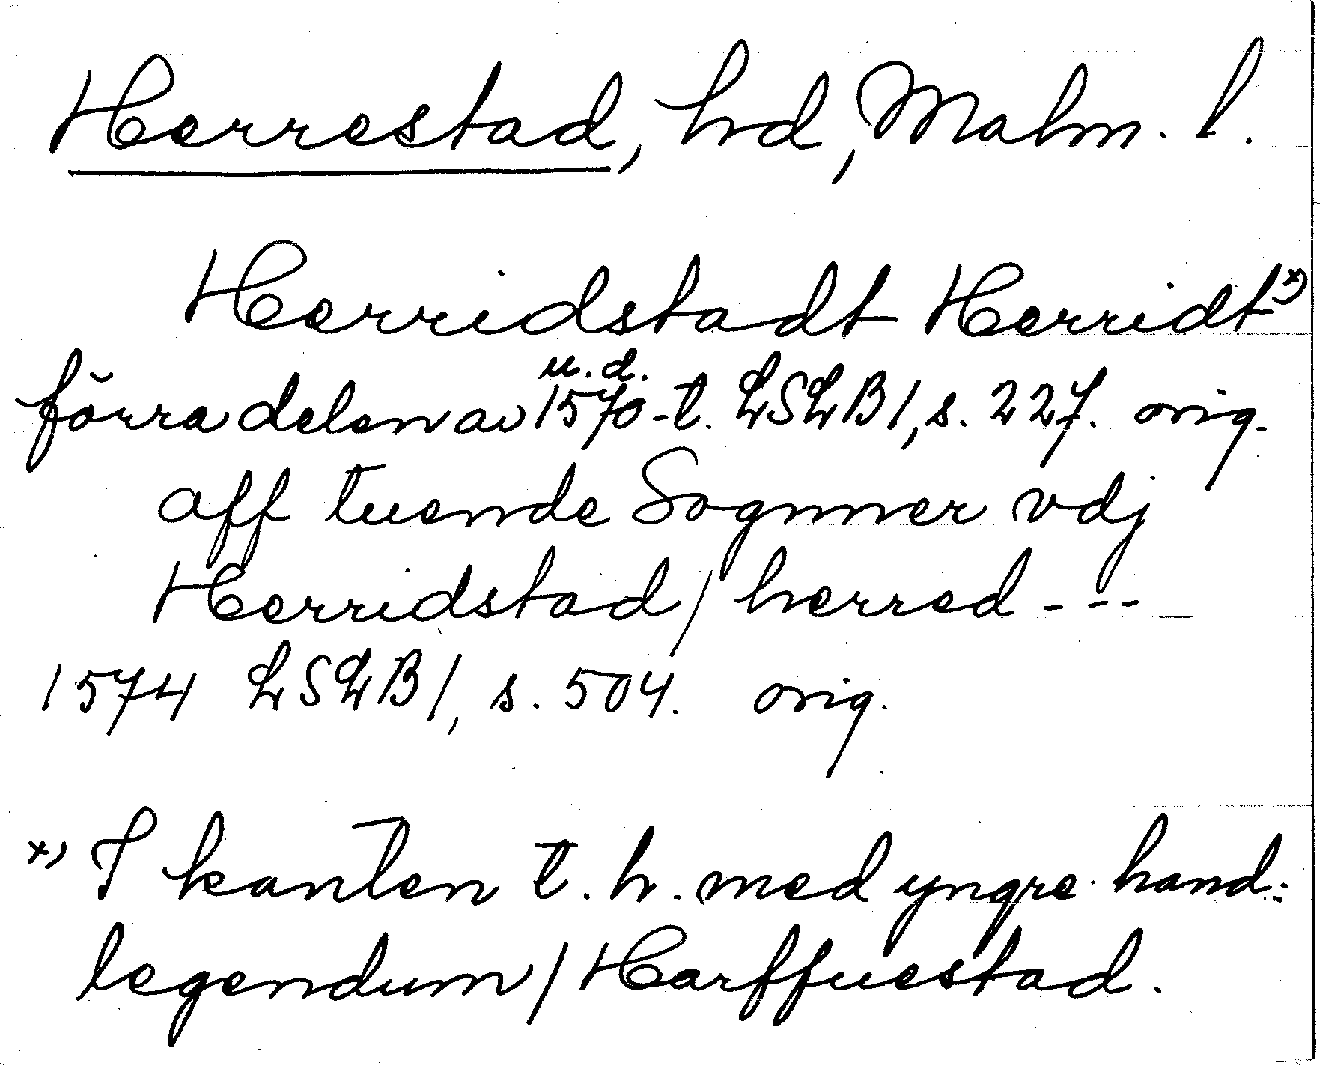 Herrestad, hd, Malm. l.
Herridstadt Herridt x)
förra delen av 1570-t. LSLB 1, s. 227. orig.
u. d.
aff tuende Sognner vdj
Herridstad / herred - - -
1574 LSLB 1, s. 504. orig.
x) I kanten t. h. med yngre hand:
legendum / Harffuestad.